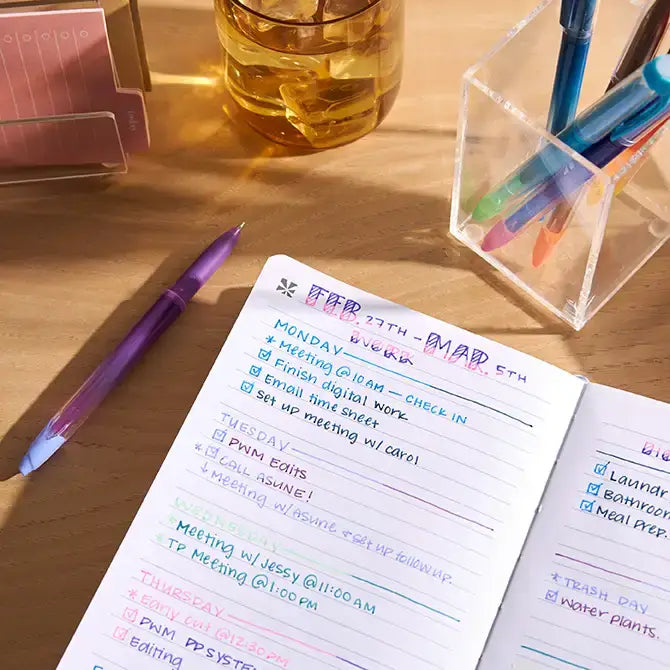 FEB. 27TH - MAR. 5TH
WEEK
MONDAY
* Meeting @ 10AM — CHECK IN
☑ Finish digital work
☑ Email time sheet
☑ set up meeting w/ carol
TUESDAY
☑ PWM Edits
*☑ CALL ASUNE!
↓ Meeting w/ Asune & set up follow up.
WEDNESDAY
* Meeting w/ Jessy @ 11:00 AM
* TP Meeting @ 1:00 PM
THURSDAY
* Early out @ 12:30 PM
☑ PWM PP SYSTE
☑ Editing
☑ Laundr
☑ Bathroom
☑ Meal prep.
* TRASH DAY
☑ Water plants.